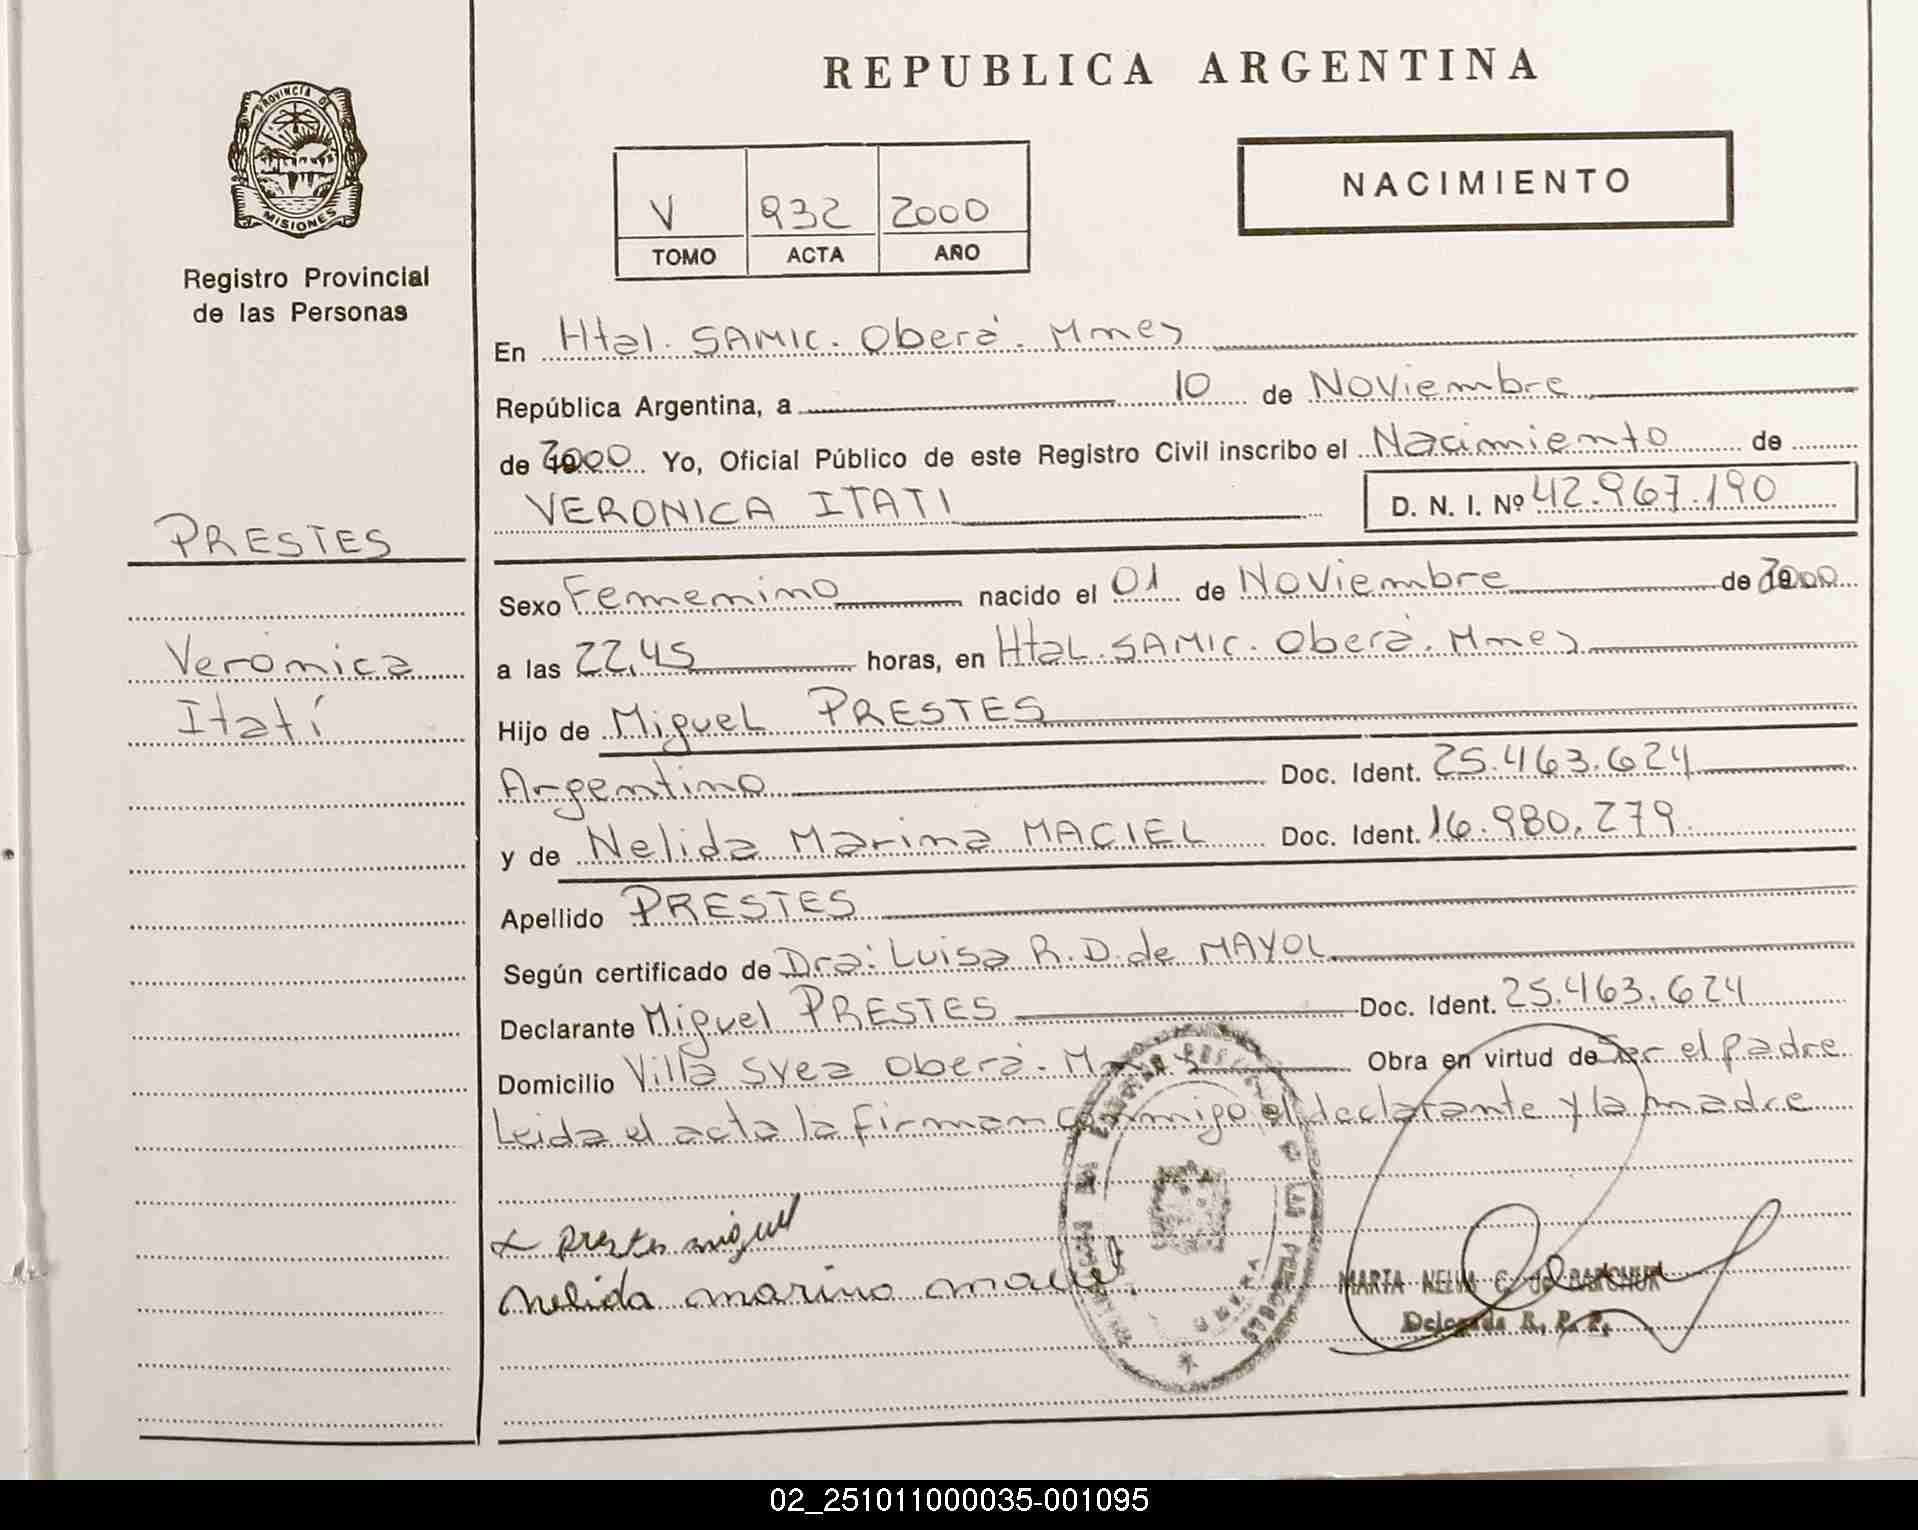 REPUBLICA ARGENTINA
PROVINCIA DE
MISIONES
Registro Provincial
de las Personas
V 932 2000
TOMO ACTA AÑO
NACIMIENTO
PRESTES
Verónica
Itatí
En Htal. SAMIC. Oberá. Mnes
República Argentina, a 10 de Noviembre
de 2000 Yo, Oficial Público de este Registro Civil inscribo el Nacimiento de
VERONICA ITATI D. N. I. Nº 42.967.190
Sexo Femenino nacido el 01 de Noviembre de 2000
a las 22,45 horas, en Htal. SAMIC. Oberá. Mnes
Hijo de Miguel PRESTES
Argentino Doc. Ident. 25.463.624
y de Nelida Marina MACIEL Doc. Ident. 16.980.279
Apellido PRESTES
Según certificado de Dra: Luisa R. D. de MAYOL
Declarante Miguel PRESTES Doc. Ident. 25.463.624
Domicilio Villa Svea Oberá. Obra en virtud de Ser el padre
Leida el acta la firman conmigo el declarante y la madre
x Prestes miguel
nelida marina maciel
MARTA NELVA C. de
Delegada R. P. P.
02_251011000035-001095